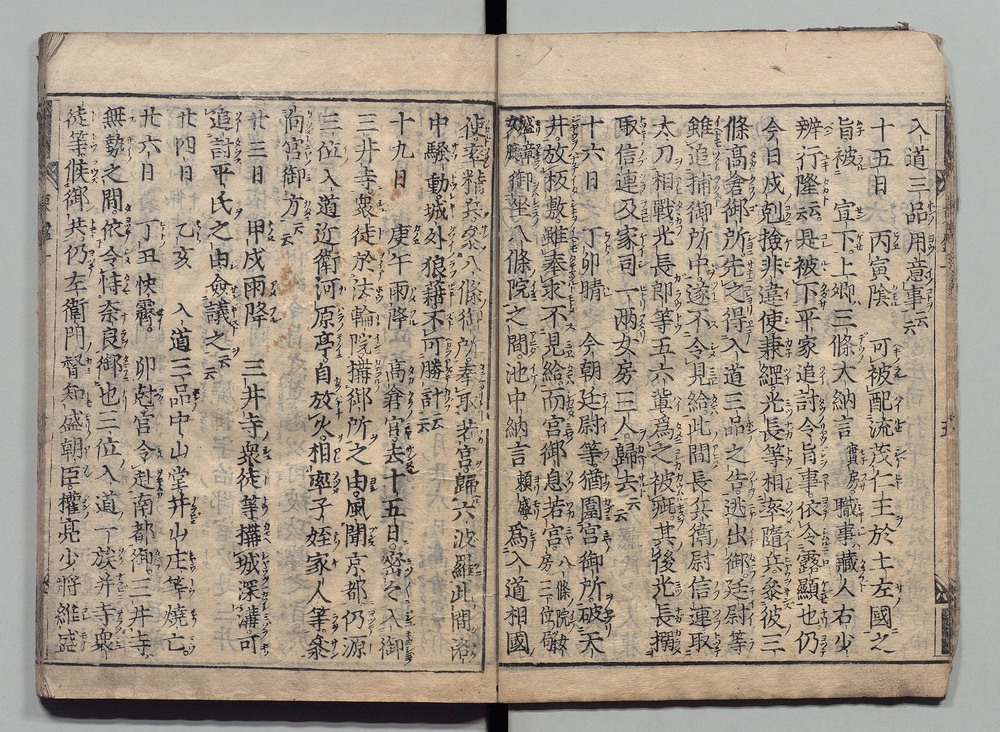 入道三品用意事云云
十五日 丙寅陰 可被配流茂仁王於土左國之
旨被 宣下上卿三條大納言實房職事藏人右少
辨行隆云云是被下平家追討令旨事依令露顯也仍
今日戌尅撿非違使兼綱光長等相率隨兵參彼三
條高倉御所先之得入道三品之告逃出御廷尉等
雖追捕御所中遂不令見給此間長兵衛尉信連取
太刀相戰光長郎等五六輩爲之被疵其後光長搦
取信連及家司一兩女房三人歸去云云
十六日 丁卯晴 今朝廷尉等猶圍宮御所破天
井放板敷雖奉求不見給而宮御息若宮八條院女房三位局
盛章女腹御坐八條院之間池中納言頼盛爲入道相國
使率精兵參八條御所奉取若宮歸六波羅此間洛
中騷動城外狼藉不可勝計云云
十九日 庚午雨降 高倉宮去十五日密々入御
三井寺衆徒於法輪院搆御所之由風聞京都仍源
三位入道近衛河原亭自放火相率子姪家人等參
向宮御方云云
廿三日 甲戌雨降 三井寺衆徒等搆城深溝可
追討平氏之由僉議之云云
廿四日 乙亥 入道三品中山堂并山庄等燒亡
廿六日 丁丑快霽 卯尅宮令赴南都御三井寺
無勢之間依令恃奈良御也三位入道一族并寺衆
徒等候御共仍左衛門督知盛朝臣權亮少將維盛